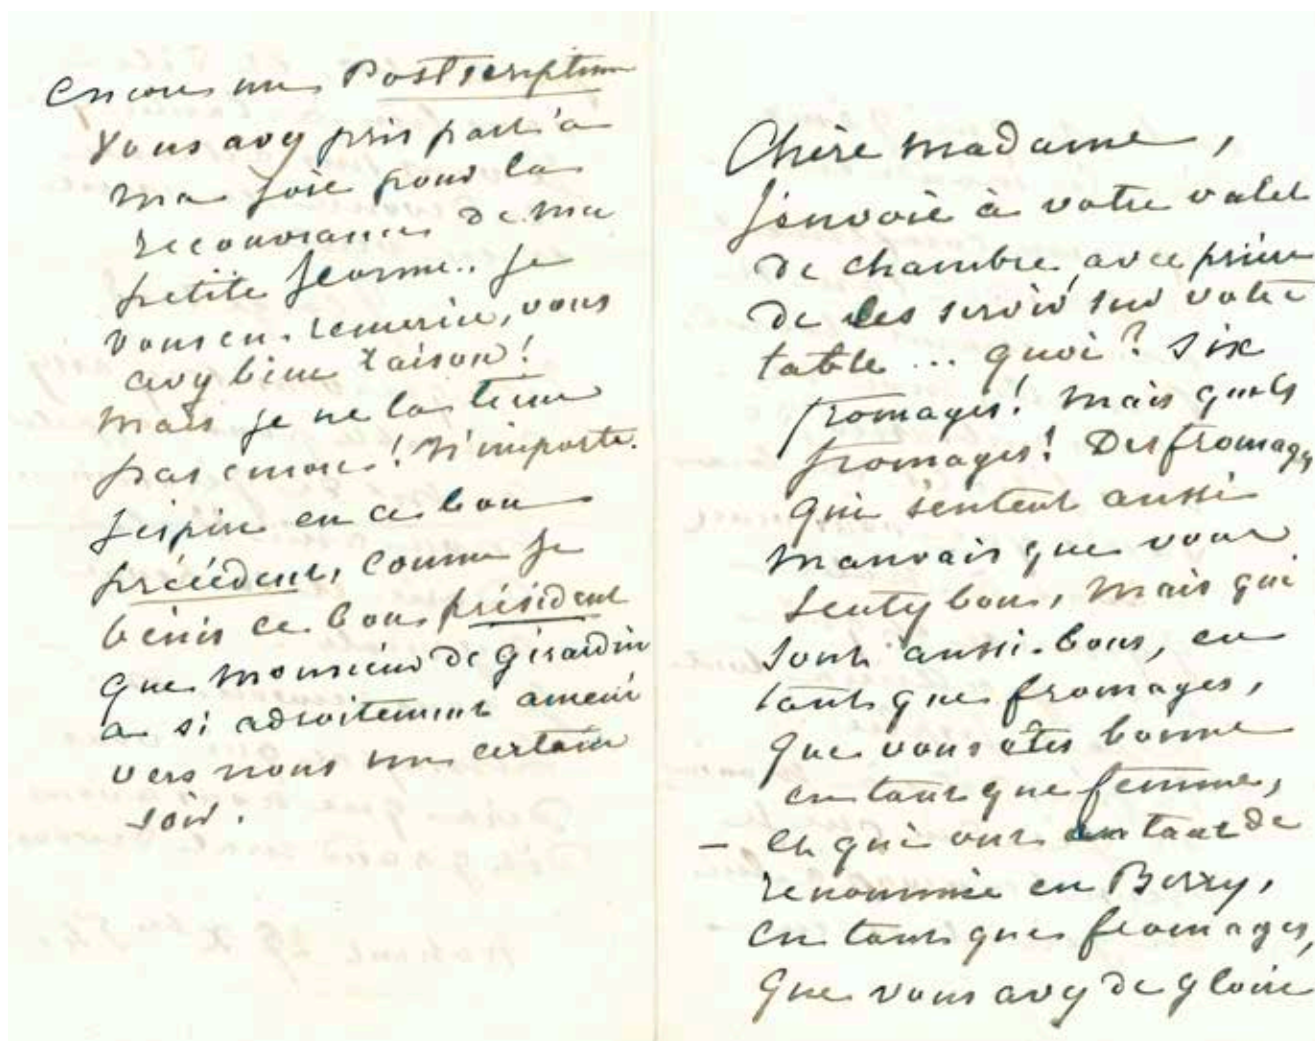 encore un Postscriptum
Vous avez pris part à
ma joie pour la
recouvrance de ma
petite Jeanne.. Je
vous en remercie, vous
avez bien raison!
Mais je ne la tiens
pas encore! N'importe.
J'espère en ce bon
précédent, comme je
bénis ce bon président
que monsieur de Girardin
a si adroitement amené
vers nous un certain
soir.
Chère madame,
J'envoie à votre valet
de chambre, avec prière
de les servir sur votre
table ... quoi? six
fromages! Mais quels
fromages! Des fromages
qui sentent aussi
mauvais que vous
sentez bon, mais qui
sont aussi bons, en
tant que fromages,
que vous êtes bonne
en tant que femme,
– et qui ont autant de
renommée en Berry,
en tant que fromages,
que vous avez de gloire